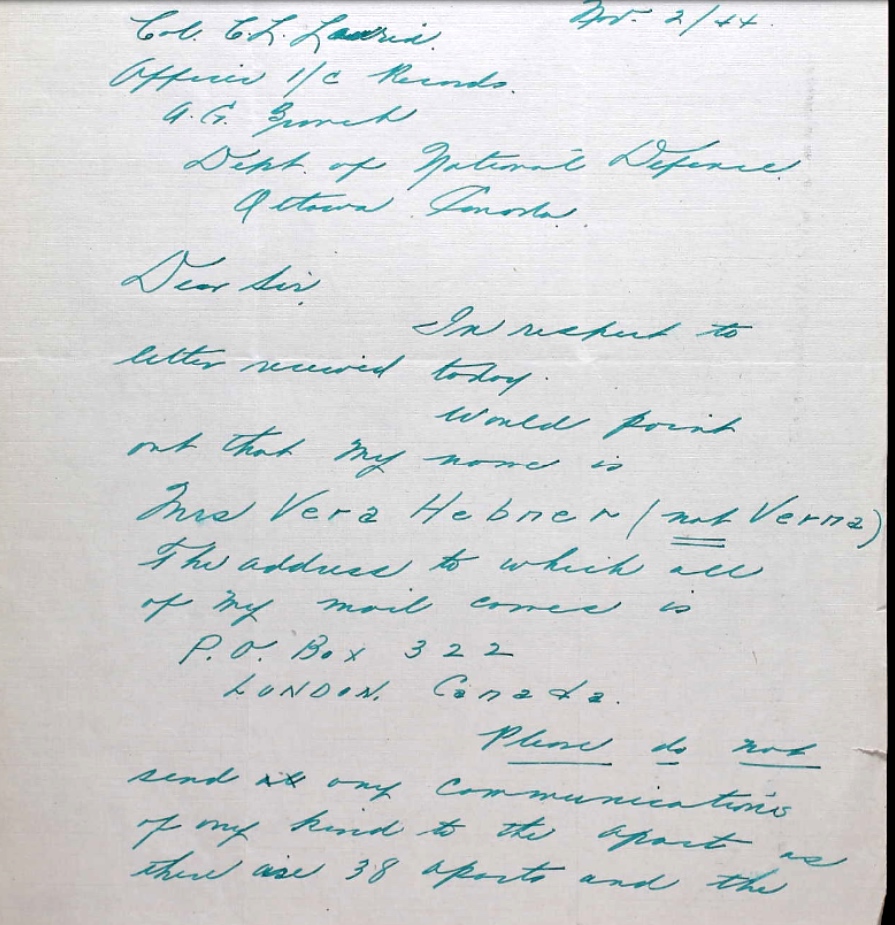 Nov. 2/44.
Col. C.L. Laurin.
Officer i/c Records.
A.G. Branch
Dept. of National Defence.
Ottawa Canada.
Dear Sir.
In respect to
letter received today.
Would point
out that my name is
Mrs Vera Hebner (not Verna)
The address to which all
of my mail comes is
P.O. Box 322
LONDON. Canada.
Please do not
send any communications
of any kind to the apart as
there are 38 aparts and the